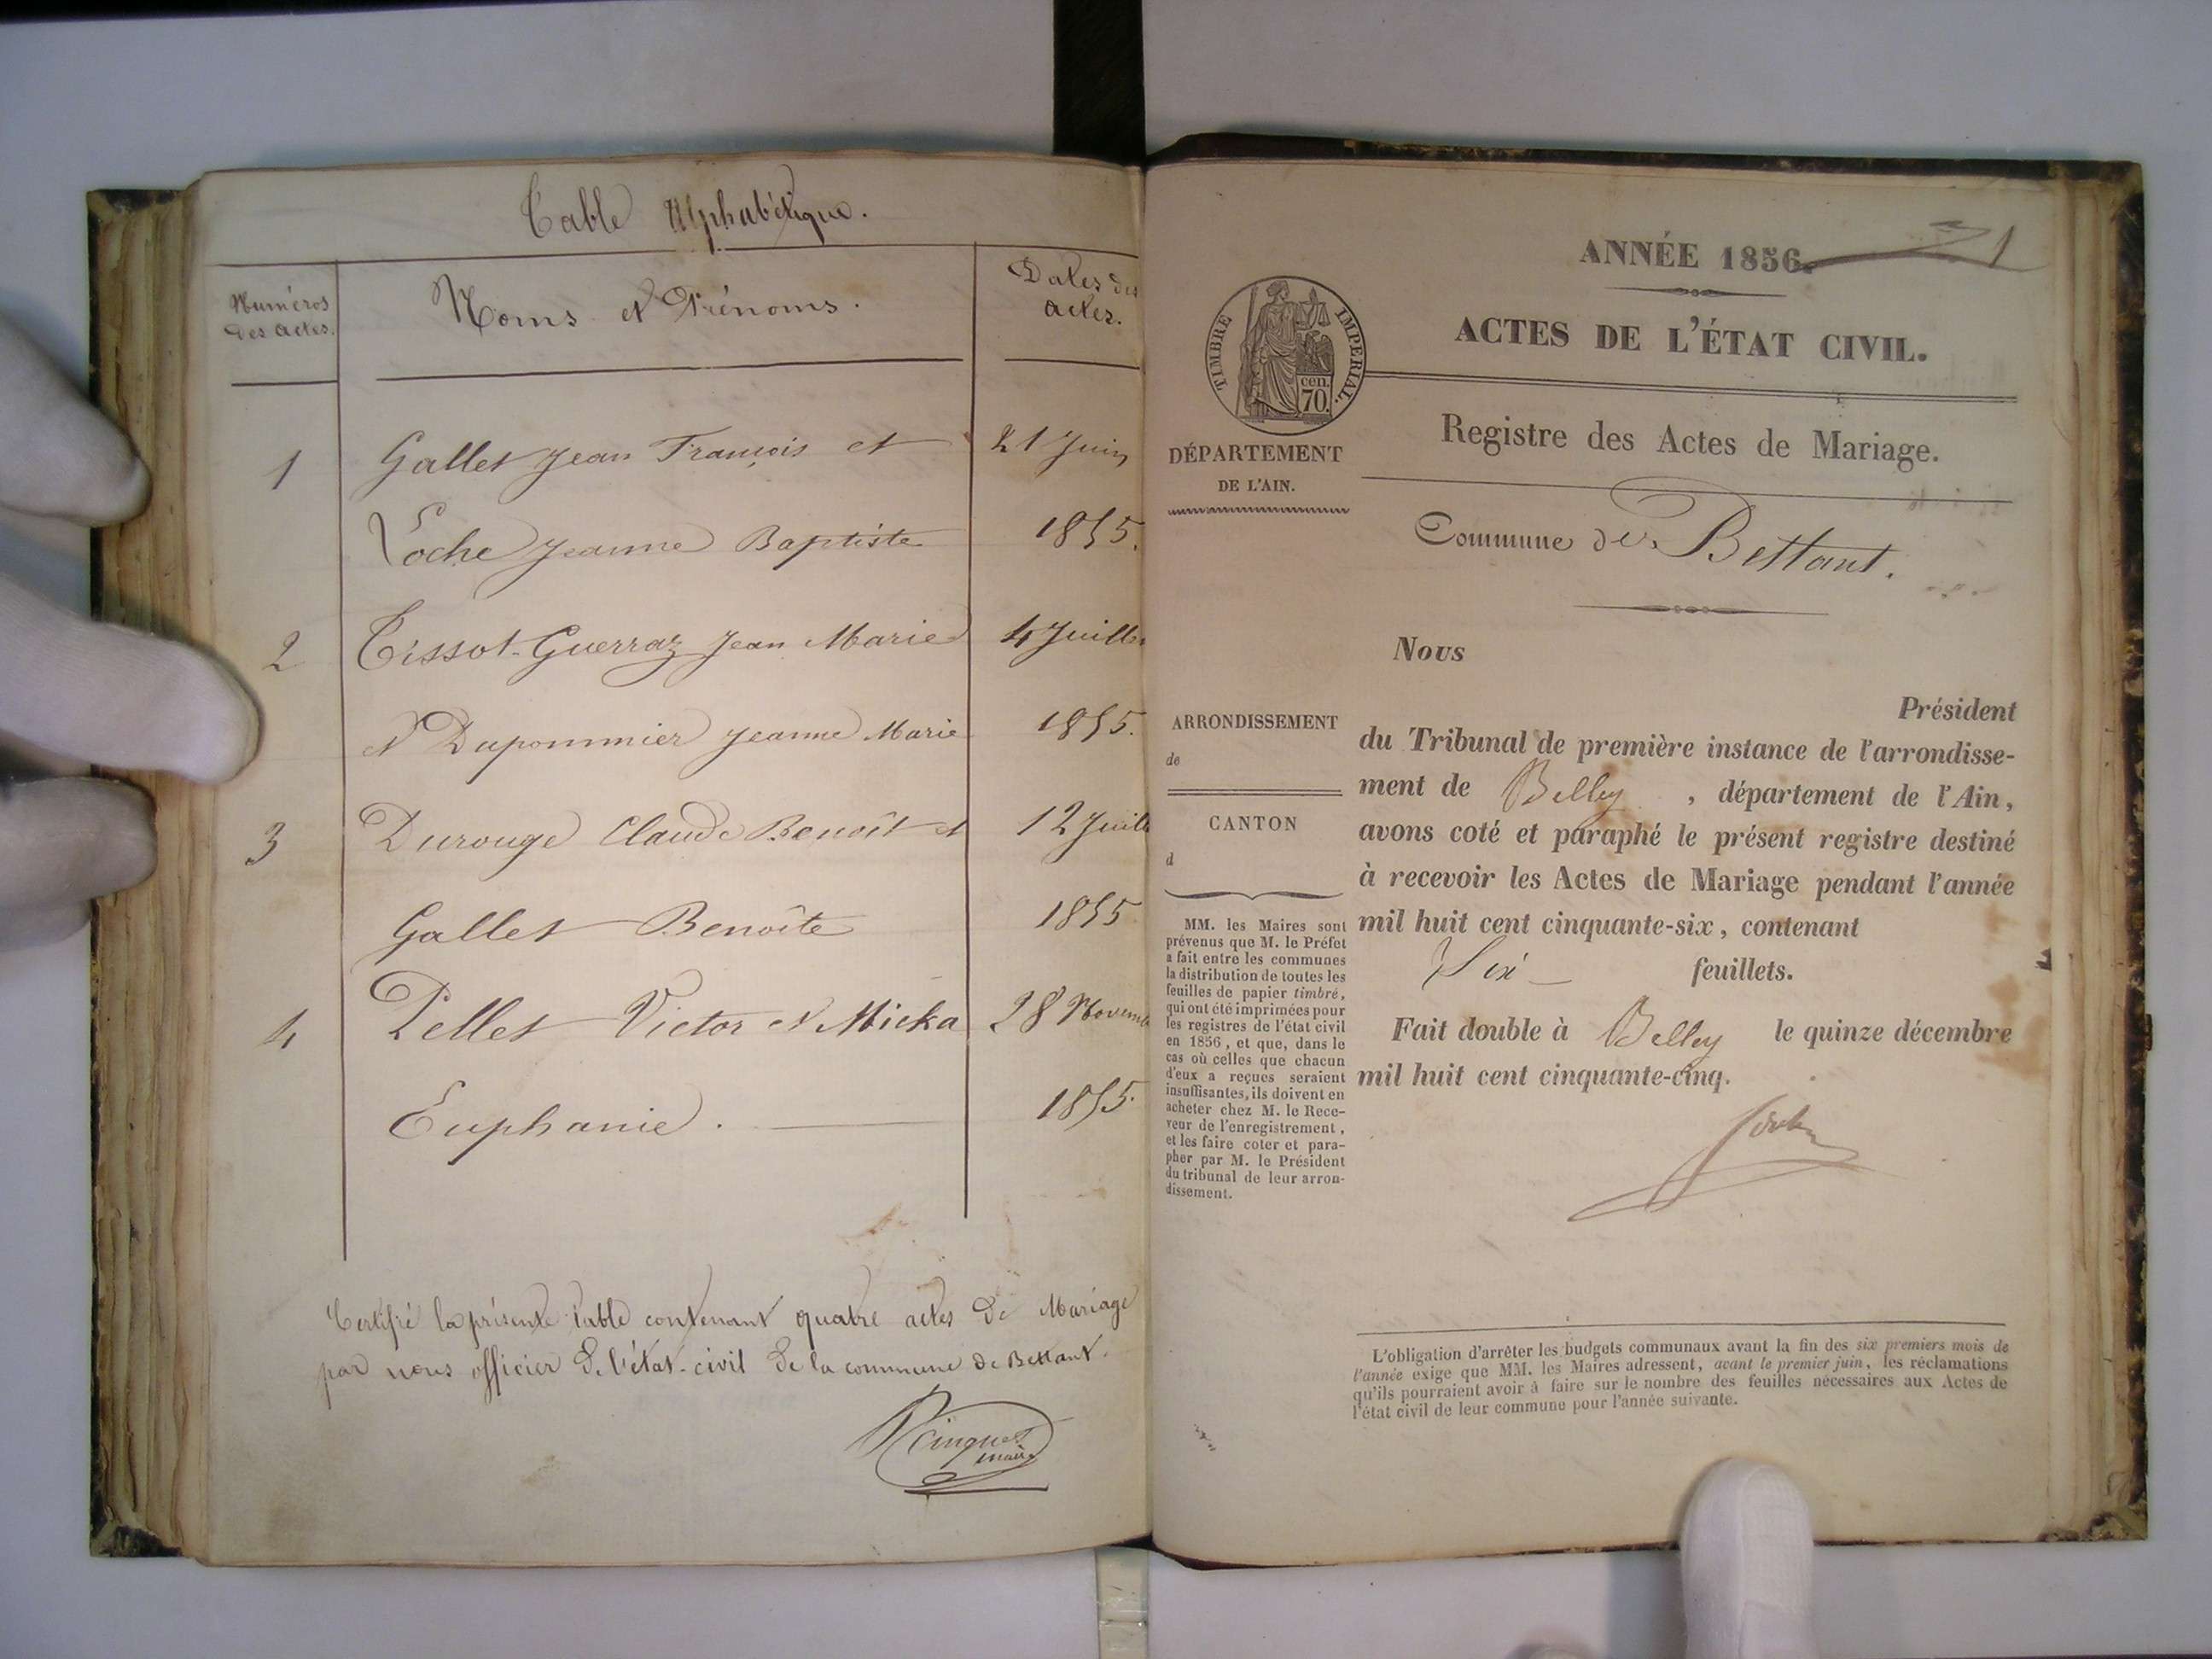 Table Alphabétique.
Numéros des actes.
Noms et Prénoms.
Dates des actes.
1 Gallet Jean François et 21 Juin
Loche Jeanne Baptiste 1855.
2 Tissot-Guerraz Jean Marie 4 Juillet
et Dupommier Jeanne Marie 1855.
3 Durouge Claude Benoît et 12 Juill
Gallet Benoîte 1855
4 Pellet Victor et Micka 28 Novemb
Euphanie. 1855.
Certifié la présente table contenant quatre actes de Mariage
par nous officier de l'état-civil de la commune de Bettant.
maire
1
ANNÉE 1856.
ACTES DE L'ÉTAT CIVIL.
TIMBRE IMPERIAL.
cen.
70.
DÉPARTEMENT
DE L'AIN.
Registre des Actes de Mariage.
Commune de Bettant.
Nous
Président
du Tribunal de première instance de l'arrondisse-
ment de Belley , département de l'Ain,
avons coté et paraphé le présent registre destiné
à recevoir les Actes de Mariage pendant l'année
mil huit cent cinquante-six, contenant
Six feuillets.
Fait double à Belley le quinze décembre
mil huit cent cinquante-cinq.
ARRONDISSEMENT
de
CANTON
d
MM. les Maires sont
prévenus que M. le Préfet
a fait entre les communes
la distribution de toutes les
feuilles de papier timbré,
qui ont été imprimées pour
les registres de l'état civil
en 1856, et que, dans le
cas où celles que chacun
d'eux a reçues seraient
insuffisantes, ils doivent en
acheter chez M. le Rece-
veur de l'enregistrement,
et les faire coter et para-
pher par M. le Président
du tribunal de leur arron-
dissement.
L'obligation d'arrêter les budgets communaux avant la fin des six premiers mois de
l'année exige que MM. les Maires adressent, avant le premier juin, les réclamations
qu'ils pourraient avoir à faire sur le nombre des feuilles nécessaires aux Actes de
l'état civil de leur commune pour l'année suivante.